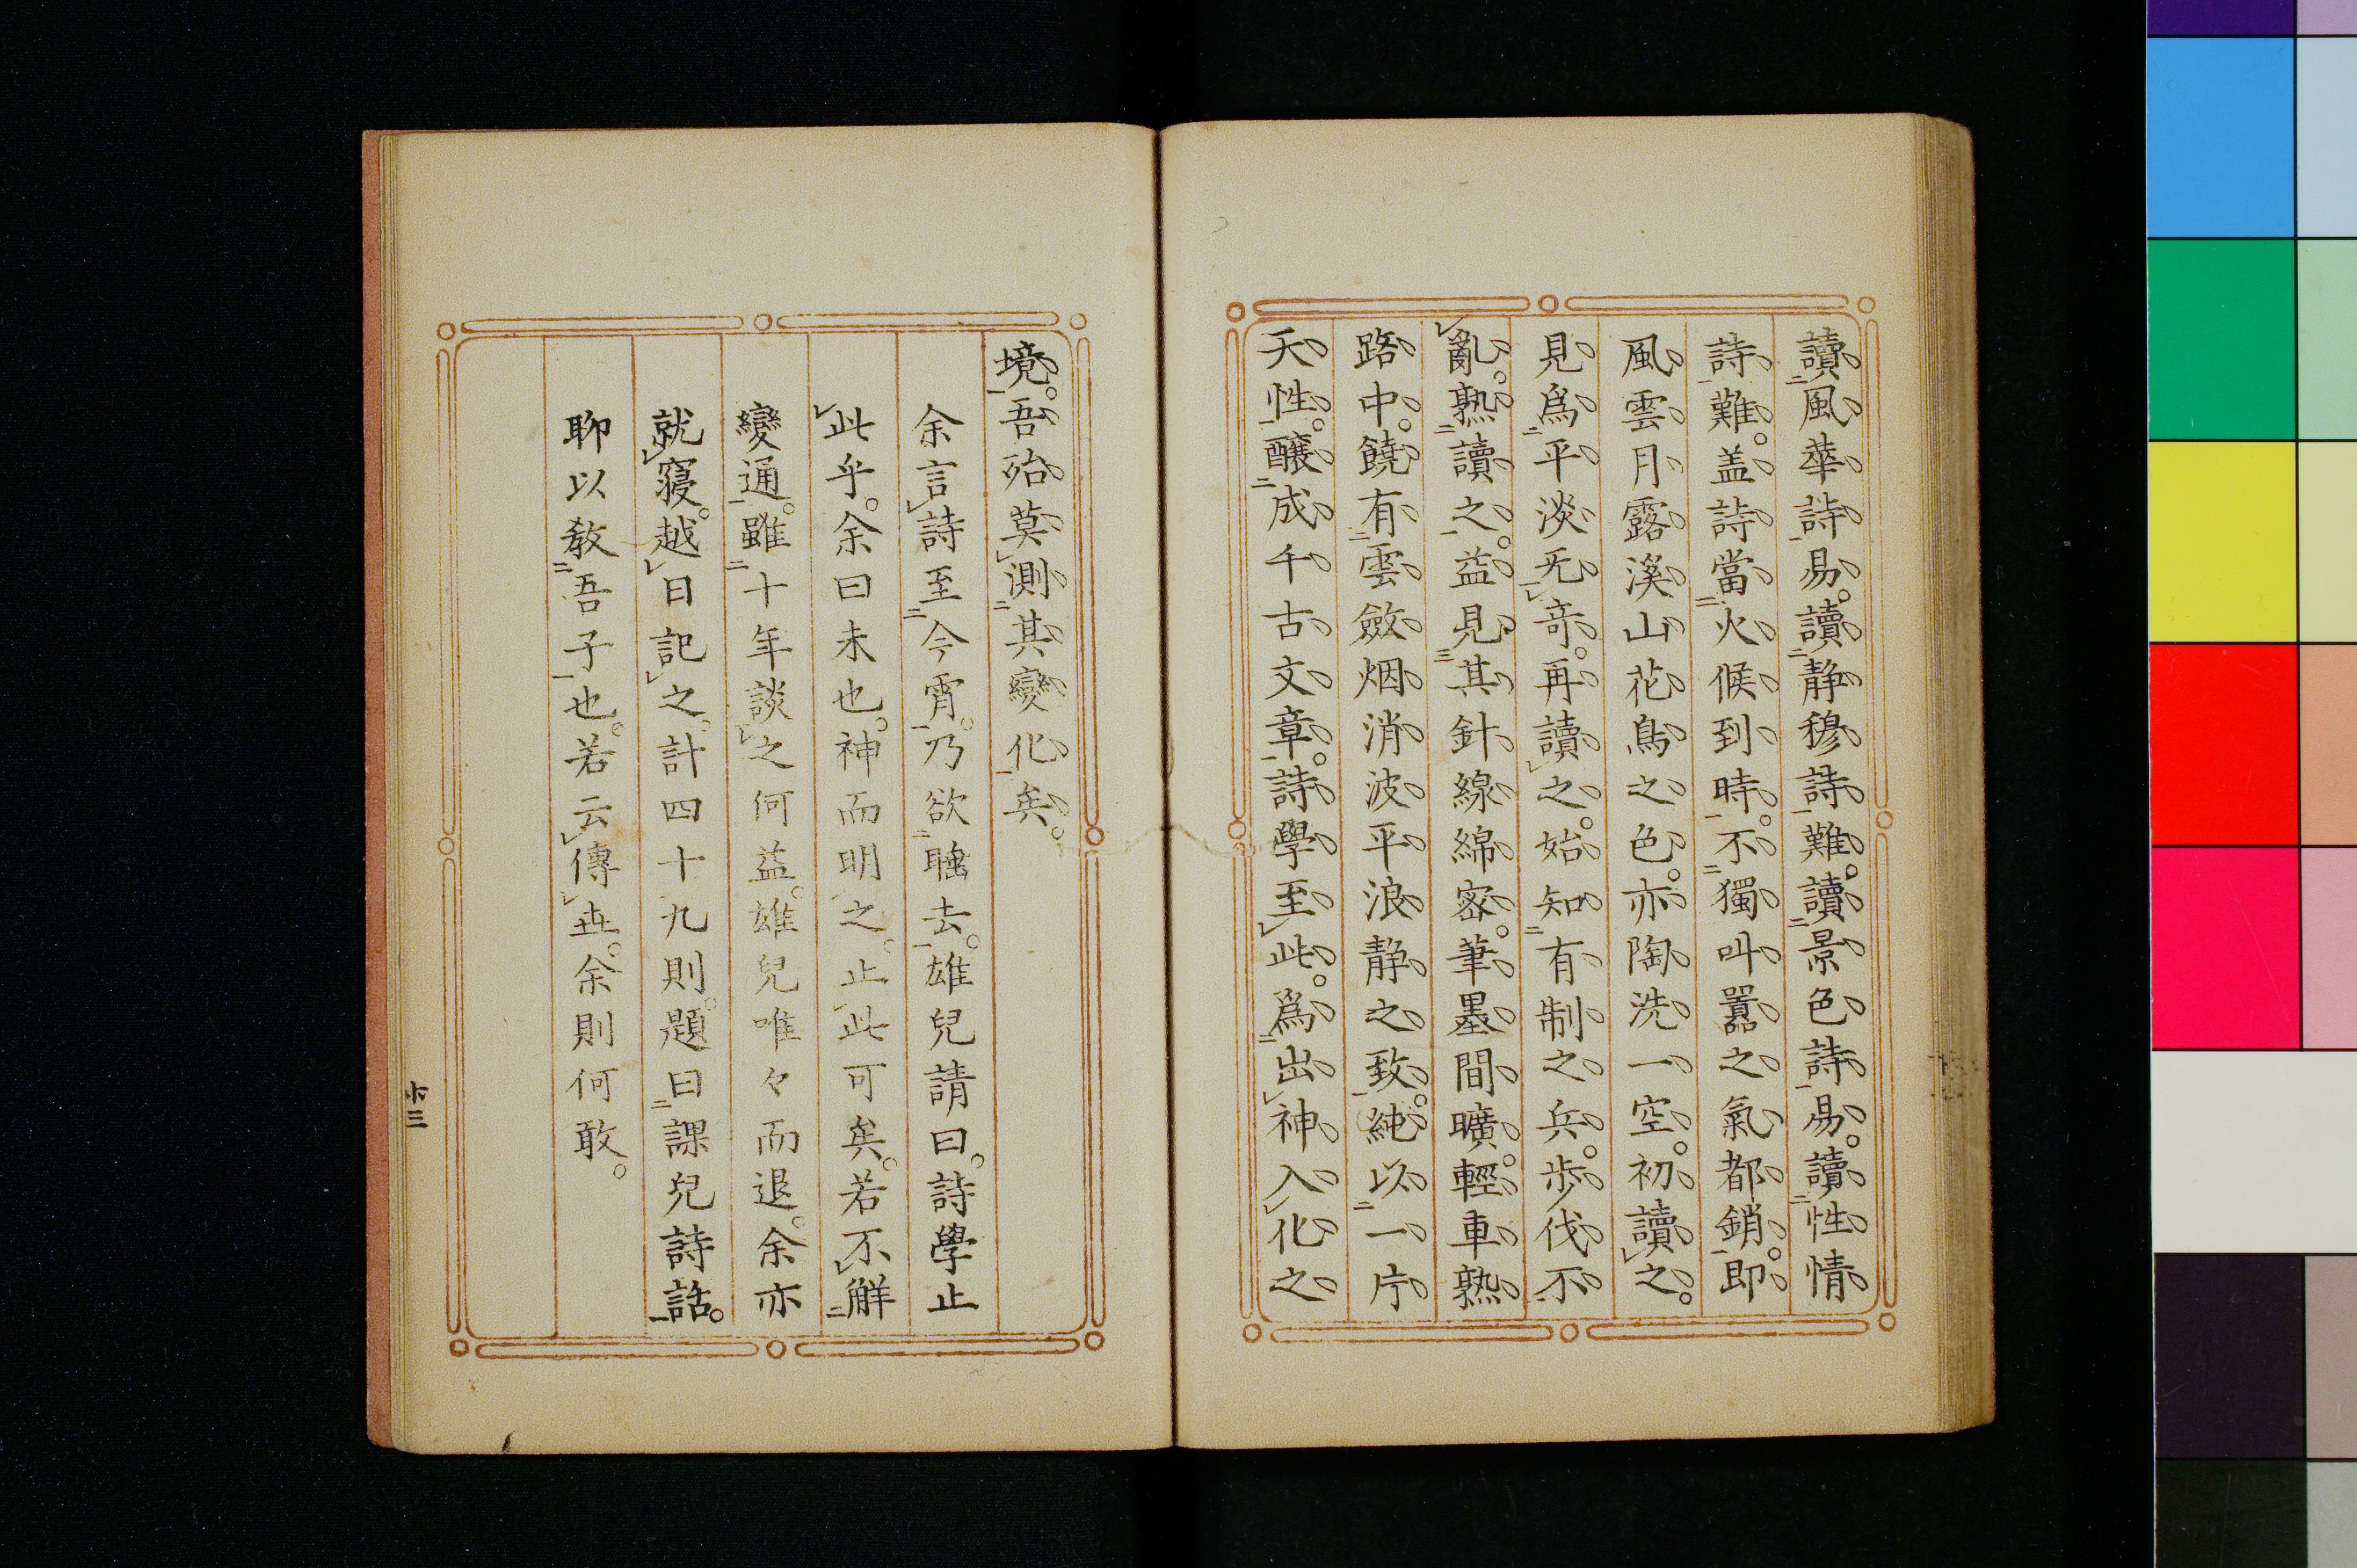 讀風華詩易。讀静穆詩難。讀景色詩易。讀性情
詩難。盖詩當火候到時。不獨叫囂之氣都銷。即
風雲月露溪山花鳥之色。亦陶洗一空。初讀之。
見爲平淡无竒。再讀之。始知有制之兵。歩伐不
亂。熟讀之。益見其針線綿密。筆墨間曠。輕車熟
路中。饒有雲斂烟消波平浪静之致。純以一片
天性。醸成千古文章。詩學至此。爲出神入化之
境。吾殆莫測其變化矣。
余言詩至今宵。乃欲睡去。雄兒請曰。詩學止
此乎。余曰未也。神而明之。止此可矣。若不觧
變通。雖十年談之何益。雄兒唯々而退。余亦
就寝。越日記之。計四十九則。題曰課兒詩話。
聊以教吾子也。若云傳世。余則何敢。
十三